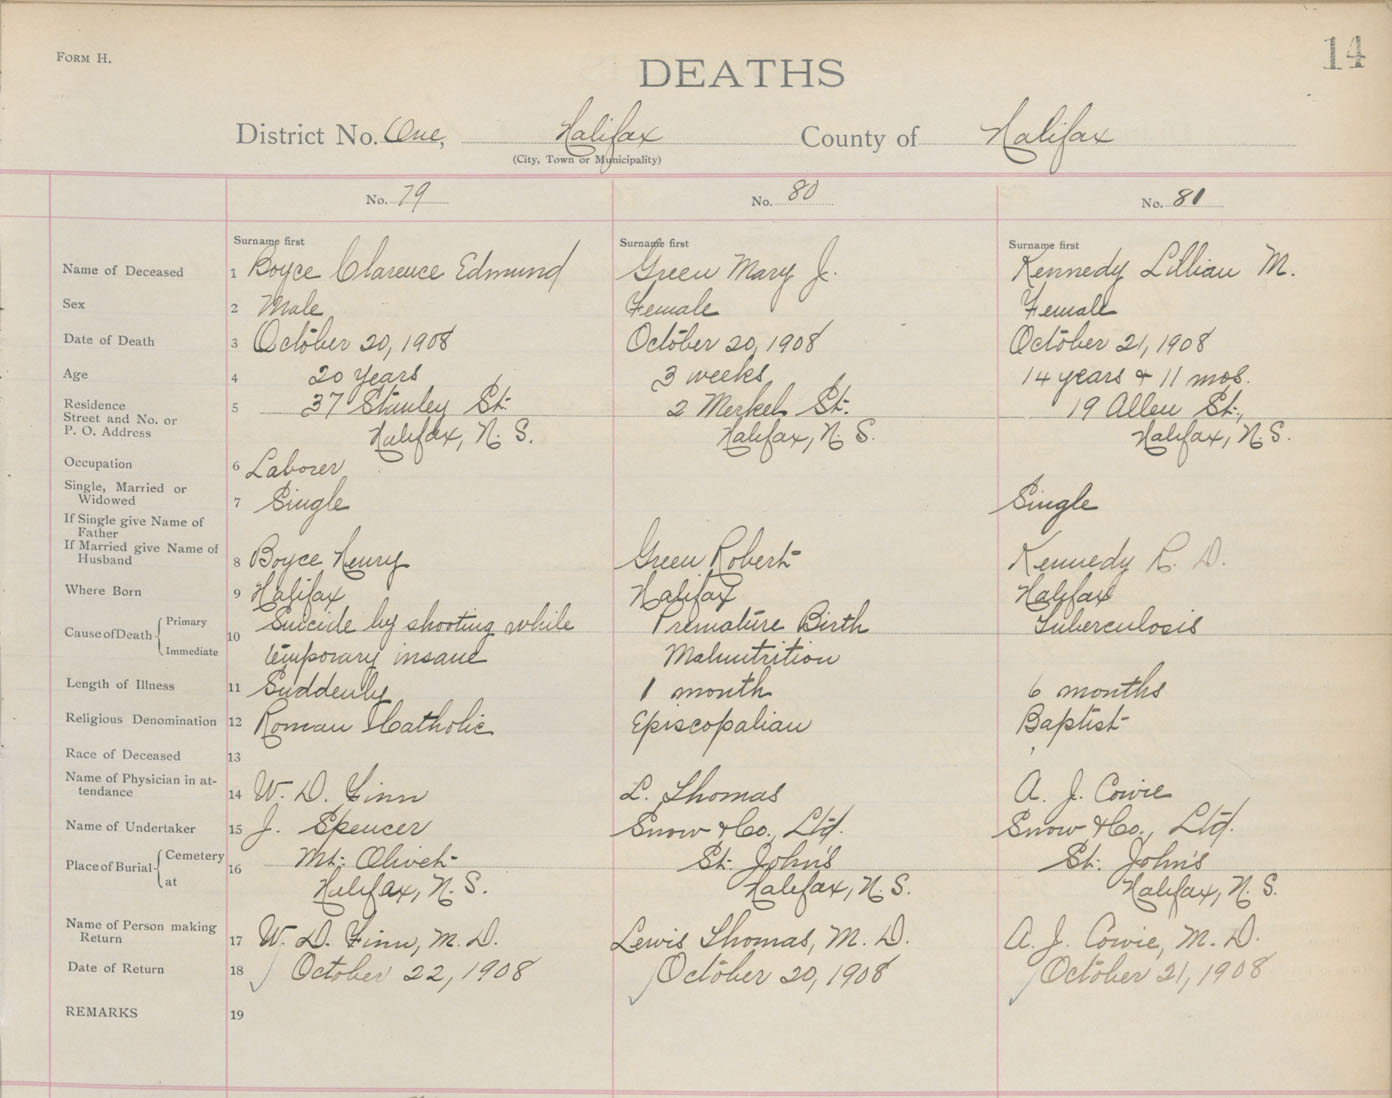 FORM H.
14
DEATHS
District No. One, Halifax County of Halifax
(City, Town or Municipality)
No. 79 No. 80 No. 81
Surname first Surname first Surname first
Name of Deceased 1 Boyce Clarence Edmund Green Mary J. Kennedy Lillian M.
Sex 2 Male Female Female
Date of Death 3 October 20, 1908 October 20, 1908 October 21, 1908
Age 4 20 years 3 weeks 14 years & 11 mos.
Residence
Street and No. or 5 37 Stanley St. 2 Merkel St. 19 Allen St.,
P. O. Address Halifax, N. S. Halifax, N. S. Halifax, N. S.
Occupation 6 Laborer
Single, Married or
Widowed 7 Single Single
If Single give Name of
Father
If Married give Name of
Husband 8 Boyce Henry Green Robert Kennedy R. D.
Where Born 9 Halifax Halifax Halifax
Cause of Death Primary 10 Suicide by shooting while Premature Birth Tuberculosis
Immediate temporary insane Malnutrition
Length of Illness 11 Suddenly 1 month 6 months
Religious Denomination 12 Roman Catholic Episcopalian Baptist
Race of Deceased 13
Name of Physician in at-
tendance 14 W. D. Finn L. Thomas A. J. Cowie
Name of Undertaker 15 J. Spencer Snow & Co., Ltd. Snow & Co., Ltd.
Place of Burial Cemetery 16 Mt. Olivet St. John's St. John's
at Halifax, N. S. Halifax, N. S. Halifax, N. S.
Name of Person making
Return 17 W. D. Finn, M. D. Lewis Thomas, M. D. A. J. Cowie, M. D.
Date of Return 18 October 22, 1908 October 20, 1908 October 21, 1908
REMARKS 19